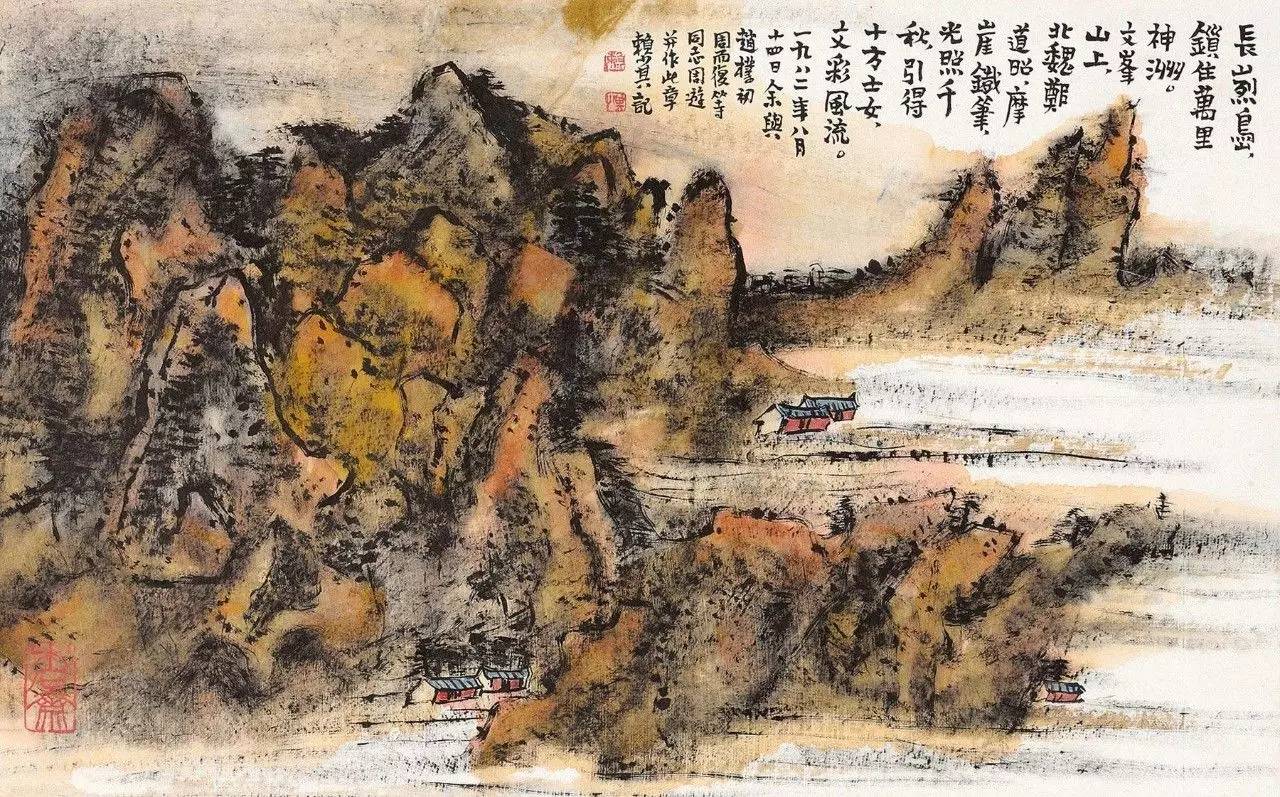 長山烈島、
鎖住萬里
神洲。
文峯
山上、
北魏鄭
道昭、摩
崖鐵筆、
光照千
秋、引得
十方士女、
文彩風流。
一九八二年八月
十四日余與
趙樸初
周而復等
同志同遊
并作此章
賴少其記
木石齋